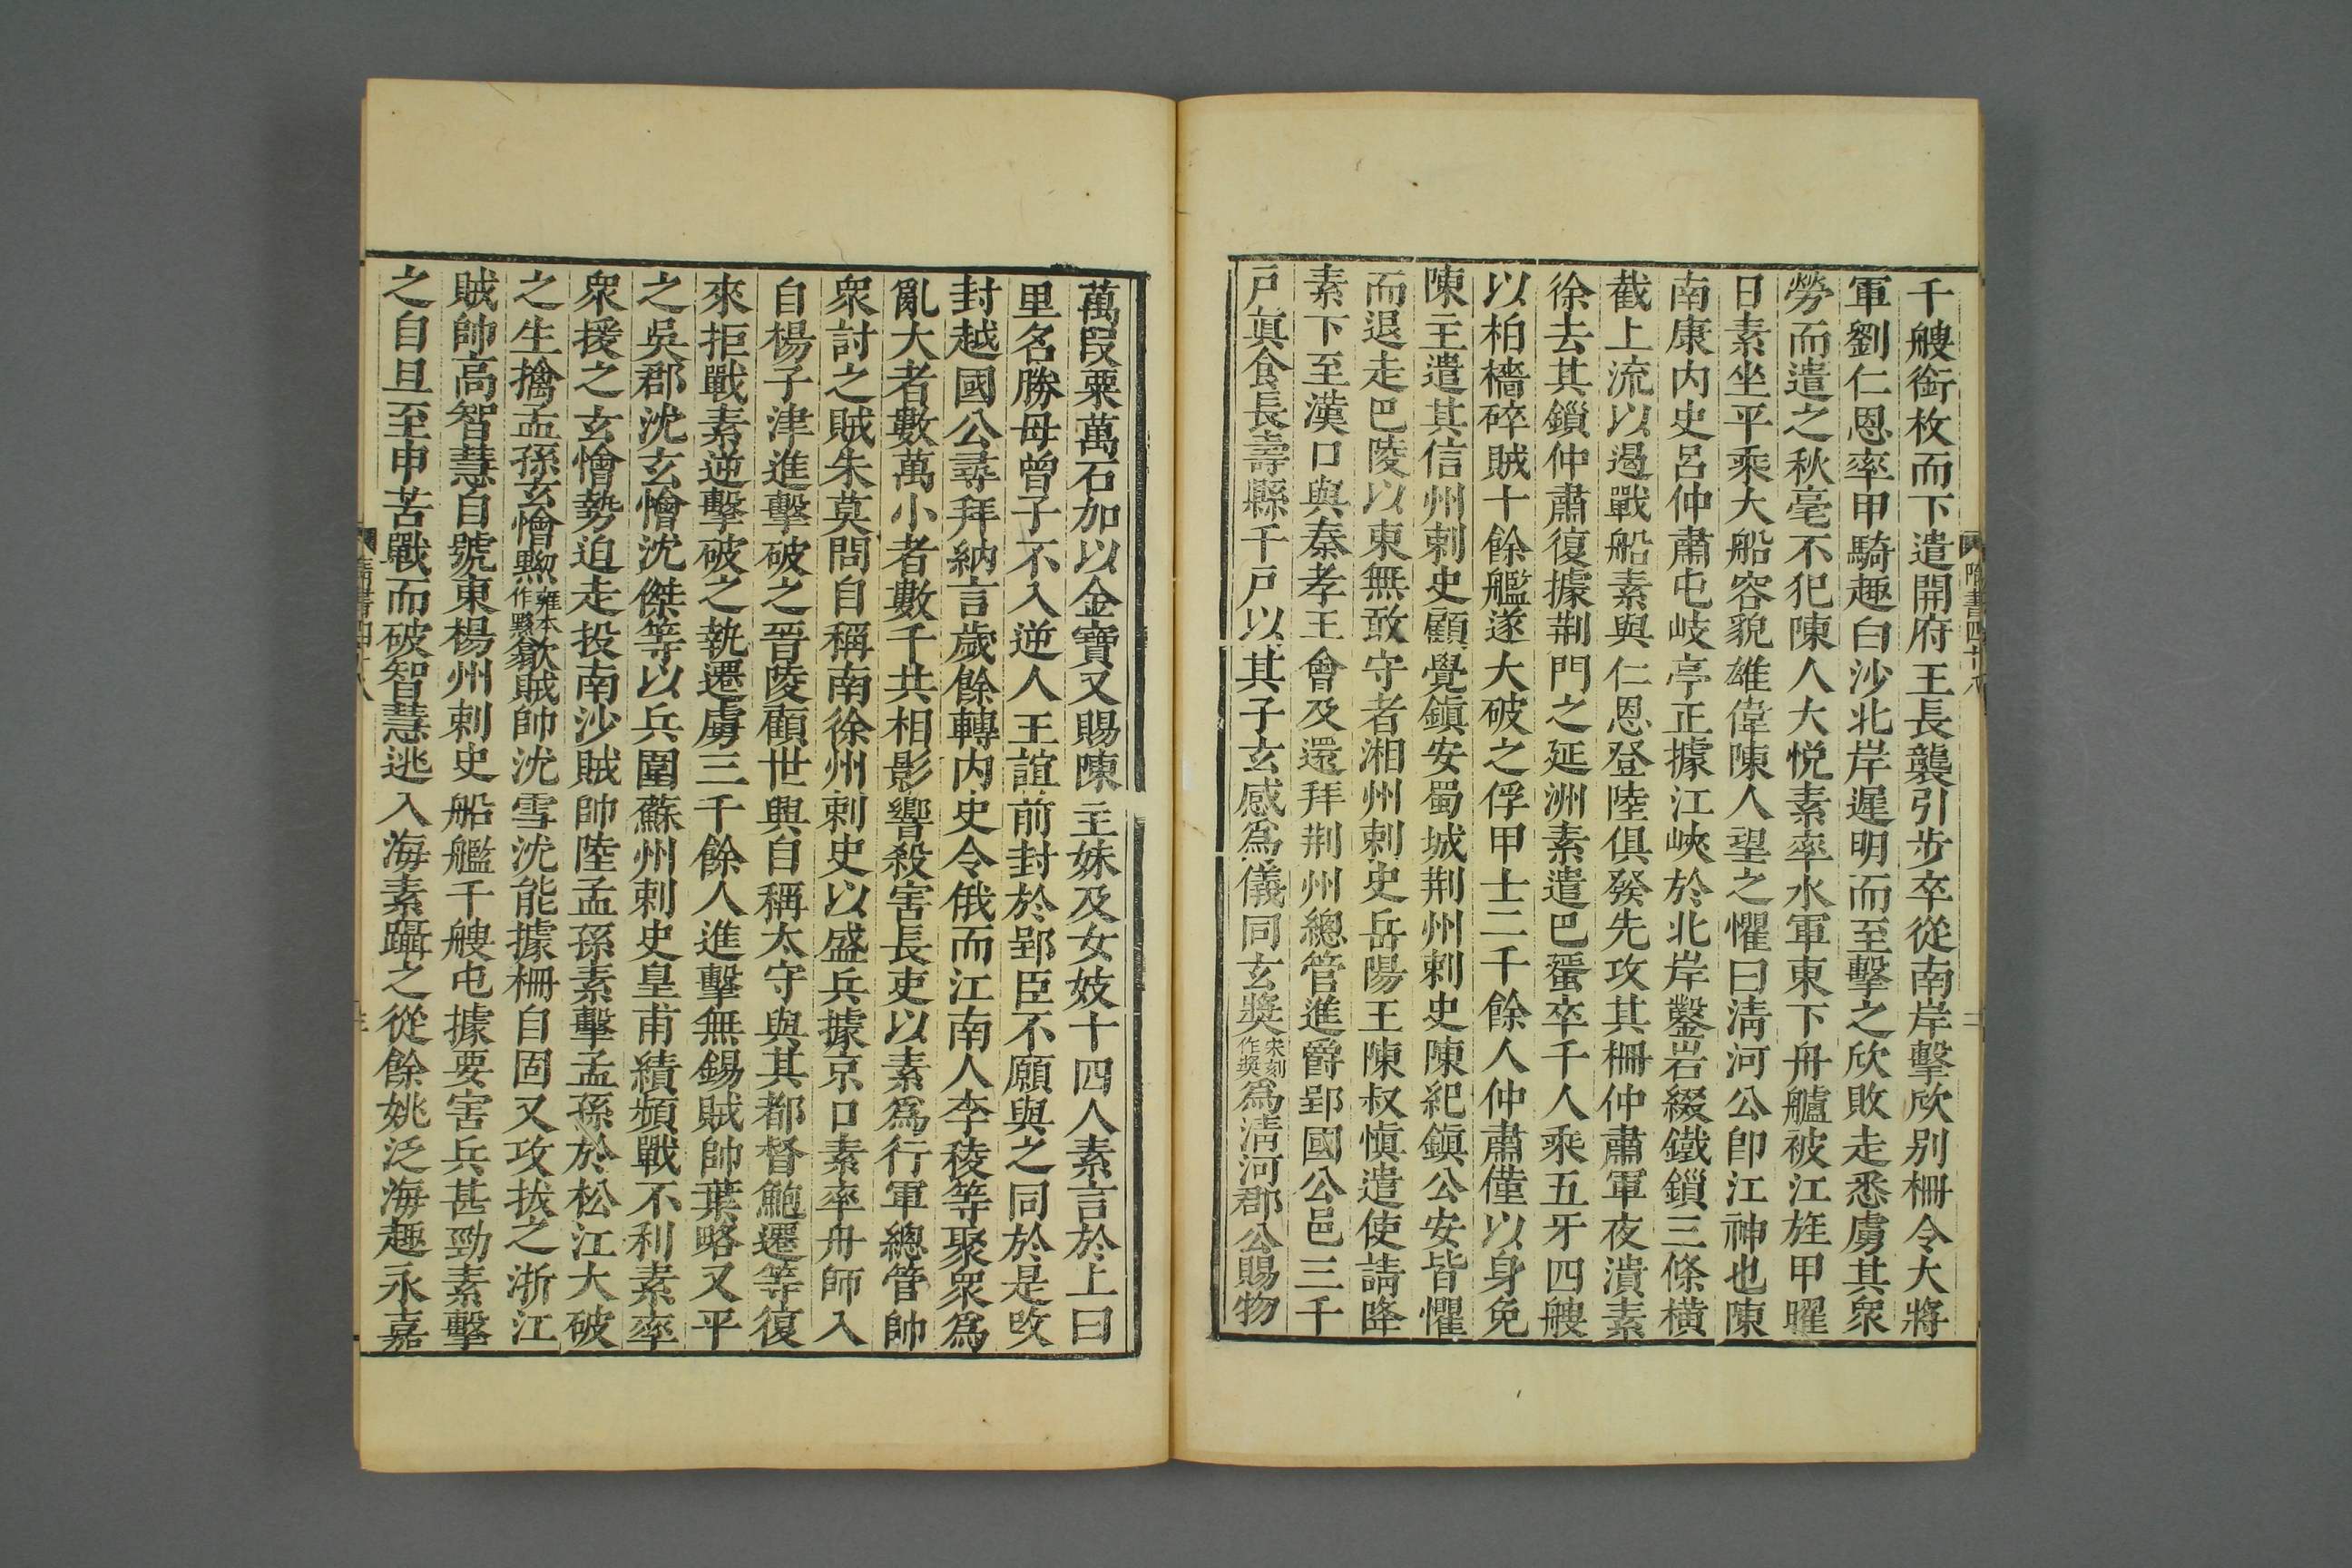 千艘銜枚而下遣開府王長襲引步卒從南岸擊欣别柵令大將
軍劉仁恩率甲騎趣白沙北岸遲明而至擊之欣敗走悉虜其衆
勞而遣之秋毫不犯陳人大悅素率水軍東下舟艫被江旌甲曜
日素坐平乘大船容貌雄偉陳人望之懼曰淸河公卽江神也陳
南康内史呂仲肅屯岐亭正據江峽於北岸鑿岩綴鐵鎖三條橫
截上流以遏戰船素與仁恩登陸俱發先攻其柵仲肅軍夜潰素
徐去其鎖仲肅復據荆門之延洲素遣巴蜑卒千人乘五牙四艘
以柏檣碎賊十餘艦遂大破之俘甲士二千餘人仲肅僅以身免
陳主遣其信州刺史顧覺鎭安蜀城荆州刺史陳紀鎭公安皆懼
而退走巴陵以東無敢守者湘州刺史岳陽王陳叔愼遣使請降
素下至漢口與秦孝王會及還拜荆州總管進爵郢國公邑三千
戸眞食長壽縣千戸以其子玄感爲儀同玄奬宋刻作奬爲淸河郡公賜物
隋書四十八
二
萬段粟萬石加以金寶又賜陳主妹及女妓十四人素言於上曰
里名勝母曾子不入逆人王誼前封於郢臣不願與之同於是改
封越國公尋拜納言歲餘轉内史令俄而江南人李稜等聚衆爲
亂大者數萬小者數千共相影響殺害長吏以素爲行軍總管帥
衆討之賊朱莫問自稱南徐州刺史以盛兵據京口素率舟師入
自楊子津進擊破之晉陵顧世興自稱太守與其都督鮑遷等復
來拒戰素逆擊破之執遷虜三千餘人進擊無錫賊帥葉略又平
之吳郡沈玄懀沈傑等以兵圍蘇州刺史皇甫績頻戰不利素率
衆援之玄懀勢迫走投南沙賊帥陸孟孫素擊孟孫於松江大破
之生擒孟孫玄懀黟雍本作黟歙賊帥沈雪沈能據柵自固又攻拔之浙江
賊帥高智慧自號東楊州刺史船艦千艘屯據要害兵甚勁素擊
之自旦至申苦戰而破智慧逃入海素躡之從餘姚泛海趣永嘉